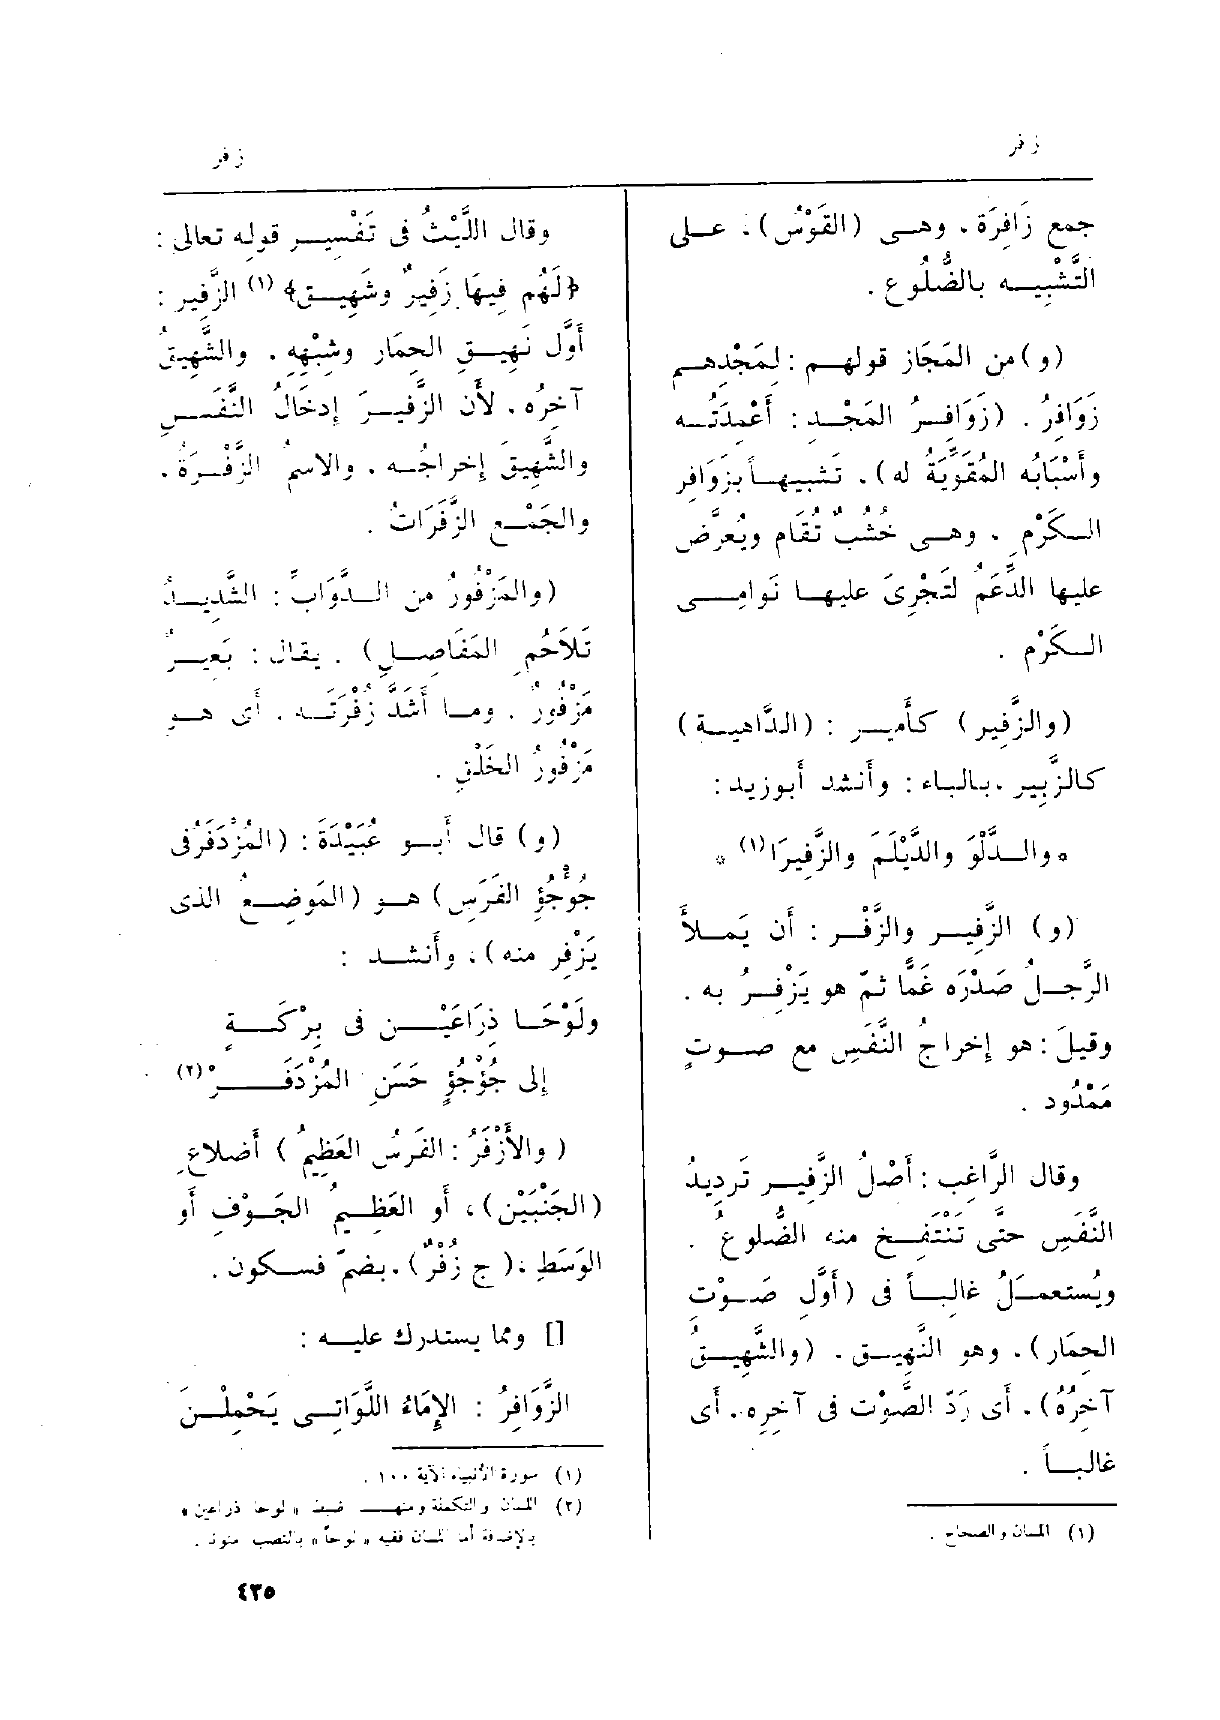 زفر
زفر
جمع زَافِرَة، وهى (القَوْسُ)، على
التَّشْبِيه بالضُّلُوع .
(و) من المَجَاز قولهم : لِمَجْدِهم
زَوَافِرُ . (زَوَافِرُ المَجْدِ : أَعْمِدَتُه
وأَسْبَابُه المُقَوِّيَةُ له)، تَشبِيهاً بِزَوَافِرِ
الكَرْمِ ، وهى خُشُبٌ تُقَام ويُعرَّض
عليها الدِّعَمُ لتَجْرِىَ عليها نَوامِى
الكَرْمِ .
(والزَّفِير) كأَمير : (الدَّاهِية)
كالزَّبِير ، بالباء : وأَنشد أَبو زيد :
* والدَّلْوَ والدَّيْلَمَ والزَّفِيرَا (١) *
(و) الزَّفِير والزَّفْر : أَن يَملأَ
الرَّجلُ صَدْرَه غَمًّا ثمّ هو يَزْفِرُ به .
وقيلَ : هو إِخراجُ النَّفَسِ مع صوتٍ
مَمْدُود .
وقال الرَّاغب : أَصْلُ الزَّفِير تَرديدُ
النَّفَسِ حتَّى تَنْتَفِخ منه الضُّلوعُ .
ويُستعملُ غالِباً فى (أَوَّلِ صَوْتِ
الحِمَار) ، وهو النَّهِيق . (والشَّهِيقُ
آخِرُهُ) ، أَى رَدّ الصَّوْت فى آخِرِه، أَى
غالباً .
(١) اللسان والصحاح .
وقال اللَّيْثُ فى تَفْسِير قوله تعالى :
﴿لَهُم فِيهَا زَفِيرٌ وشَهِيق﴾ (١) الزَّفِير :
أَوَّل نَهِيقِ الحِمَار وشِبْهِهِ ، والشَّهِيقُ
آخِرُه، لأَن الزَّفِيرَ إِدخَالُ النَّفَسِ
والشَّهِيقَ إِخراجُه ، والاسمُ الزَّفْرَةُ ،
والجَمْع الزَّفَرَاتُ .
(والمَزْفُورُ من الدَّوَابِّ : الشَّدِيدُ
تَلَاحُمِ المَفَاصِلِ) . يقال : بَعِيرٌ
مَزْفُورٌ . وما أَشَدَّ زُفْرَتَه ، أَى هو
مَزْفُورُ الخَلْقِ .
(و) قال أَبو عُبَيْدَةَ : (المُزْدَفَرُ فى
جُوْجُؤِ الفَرَسِ) هو (المَوضِعُ الذى
يَزْفِر منه) ، وأَنشد :
ولَوْحَا ذِرَاعَيْنِ فى بِرْكَةٍ
إلى جُؤْجُؤٍ حَسَنِ المُزْدَفَرْ (٢)
(والأَزْفَرُ : الفَرَسُ العَظِيمُ) أَضلاعِ
(الجَنْبَيْنِ)، أَو العَظِيمُ الجَوْفِ أَو
الوَسَطِ ، (ج زُفْرٌ) ، بضمّ فسكون .
[] ومما يستدرك عليه :
الزَّوَافِرُ : الإِمَاءُ اللَّوَاتِى يَحْمِلْنَ
(١) سورة الأنبياء الآية ١٠٠ .
(٢) اللسان والتكملة ومنهـ ضبط « لوحا ذراعين »
بالإضافة أما اللسان ففيه « لوحاً » بالنصب منونة .
٤٣٥